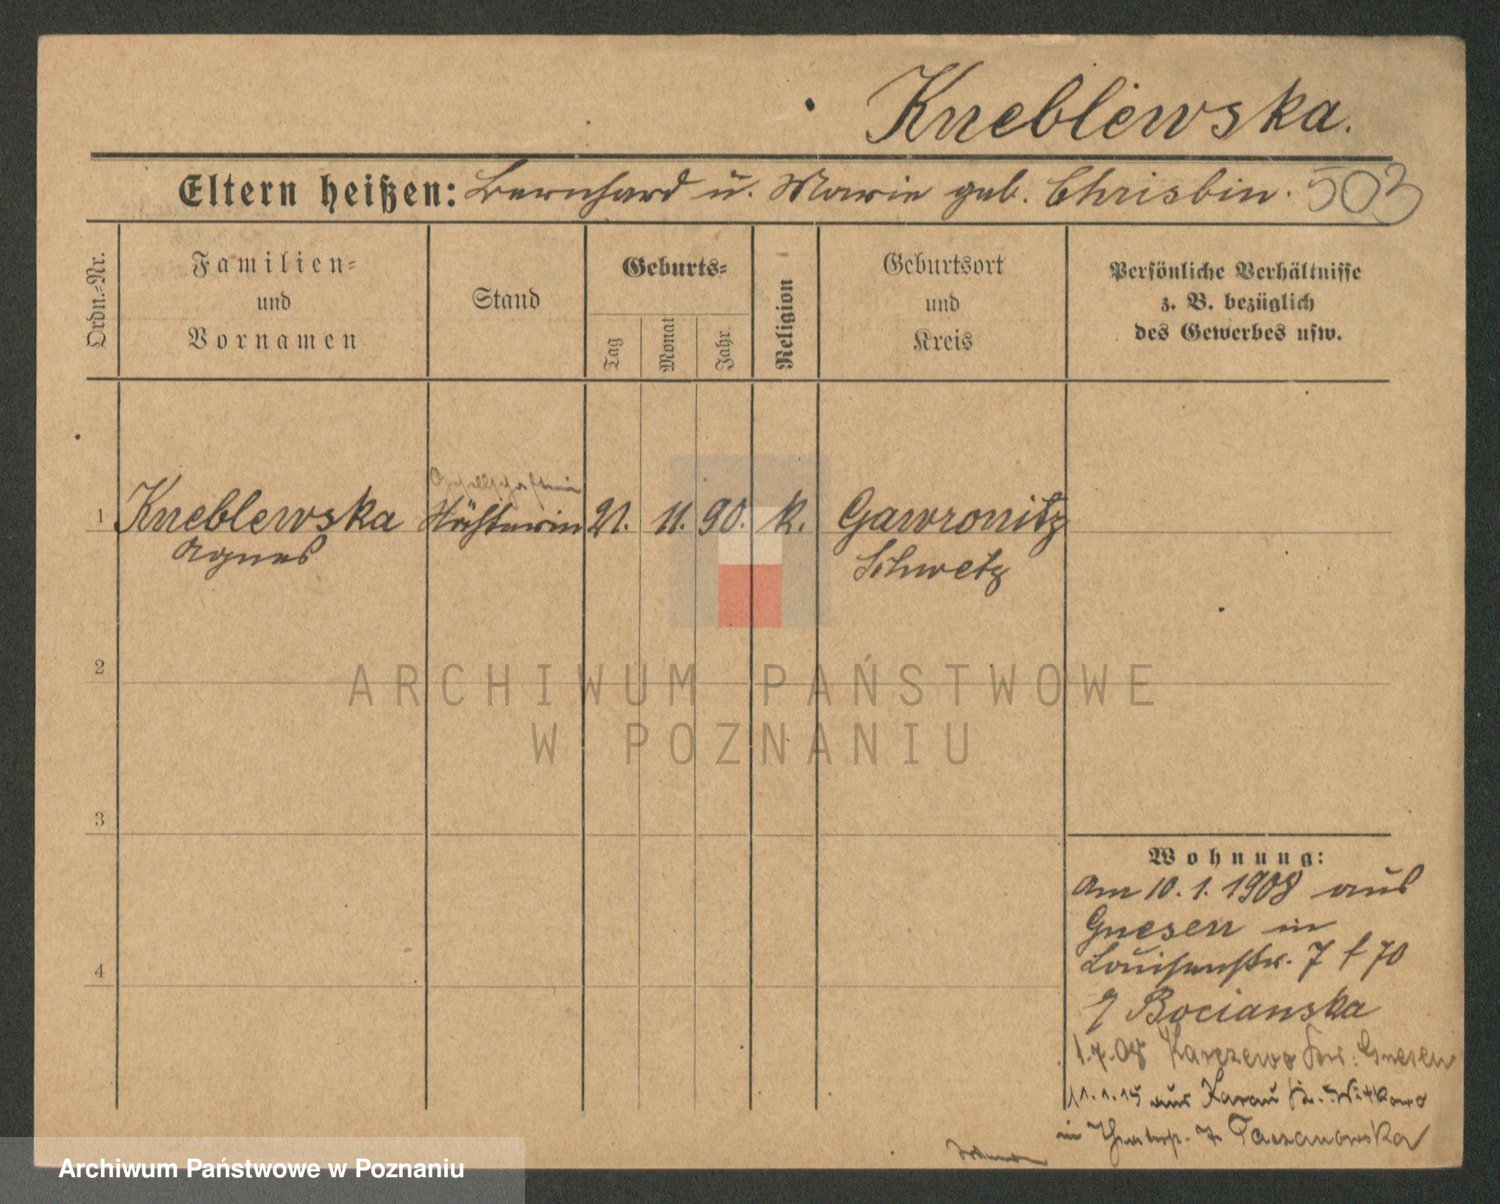 Kneblewska.
Eltern heißen: Bernhard u. Marie geb. Chrisbin. 503
Ordn.-Nr.
Familien-
und
Vornamen
Stand
Geburts-
Tag
Monat
Jahr
Religion
Geburtsort
und
Kreis
Persönliche Verhältnisse
z. B. bezüglich
des Gewerbes usw.
1 Kneblewska 21. 11. 90. k. Gawronitz
Agnes Schwetz
2
ARCHIWUM PAŃSTWOWE
W POZNANIU
3
4
Wohnung:
Am 10.1.1908 aus
Gnesen in
Louisenstr. 7 f 70
Bocianska
1.7.08 Karczewo Gnesen
11.1.15 aus Witkowo
in Taczanowska
Archiwum Państwowe w Poznaniu